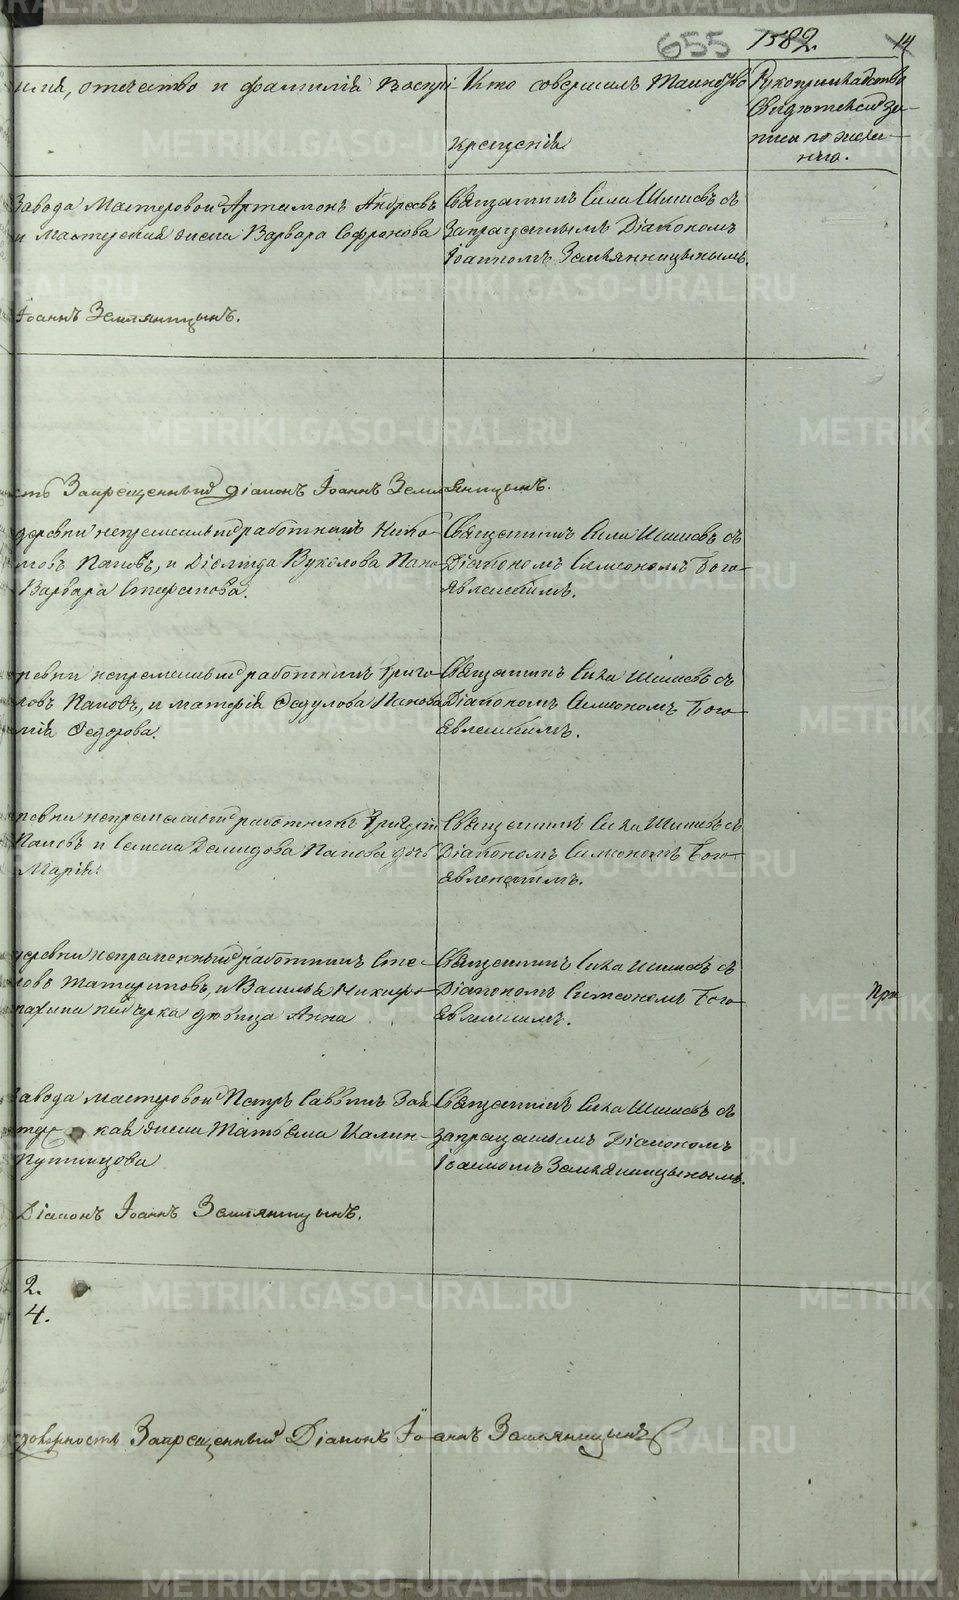 655 1582. 14
имя, отечество и фамилія Воспрі-
Кто совершилъ Таинство
крещенія
Рукоприкладство
Свидетелей за-
писи по жела-
нію.
Завода Мастеровой Артамонъ Андреевъ
и Мастерская жена Варвара Софронова
Священникъ Сила Шишевъ съ
Запрещеннымъ Діакономъ
Іоанномъ Земляницынымъ.
Іоаннъ Земляницынъ.
Запрещенный Діаконъ Іоаннъ Земляницынъ.
деревни непременный работникъ Нико-
Поповъ, и Вуколова Попо-
Варвара Стефанова.
Священникъ Сила Шишевъ съ
Діакономъ Симеономъ Бого-
явленскимъ.
непременный работникъ Григо-
Поповъ, и Попова
Федорова.
Священникъ Сила Шишевъ съ
Діакономъ Симеономъ Бого-
явленскимъ.
непременный работникъ Григорій
Поповъ и Демидова Попова дочь
Марія.
Священникъ Сила Шишевъ съ
Діакономъ Симеономъ Бого-
явленскимъ.
деревни непременный работникъ Сте-
Татариновъ, и Василья Никифо-
девица Анна
Священникъ Сила Шишевъ съ
Діакономъ Симеономъ Бого-
явленскимъ.
При
Завода мастеровой Петръ Саввинъ
жена Татьяна Калин-
Путимцова
Священникъ Сила Шишевъ съ
запрещеннымъ Діакономъ
Іоанномъ Земляницынымъ.
Діаконъ Іоаннъ Земляницынъ.
2.
4.
Запрещенный Діаконъ Іоаннъ Земляницынъ
METRIKI.GASO-URAL.RU